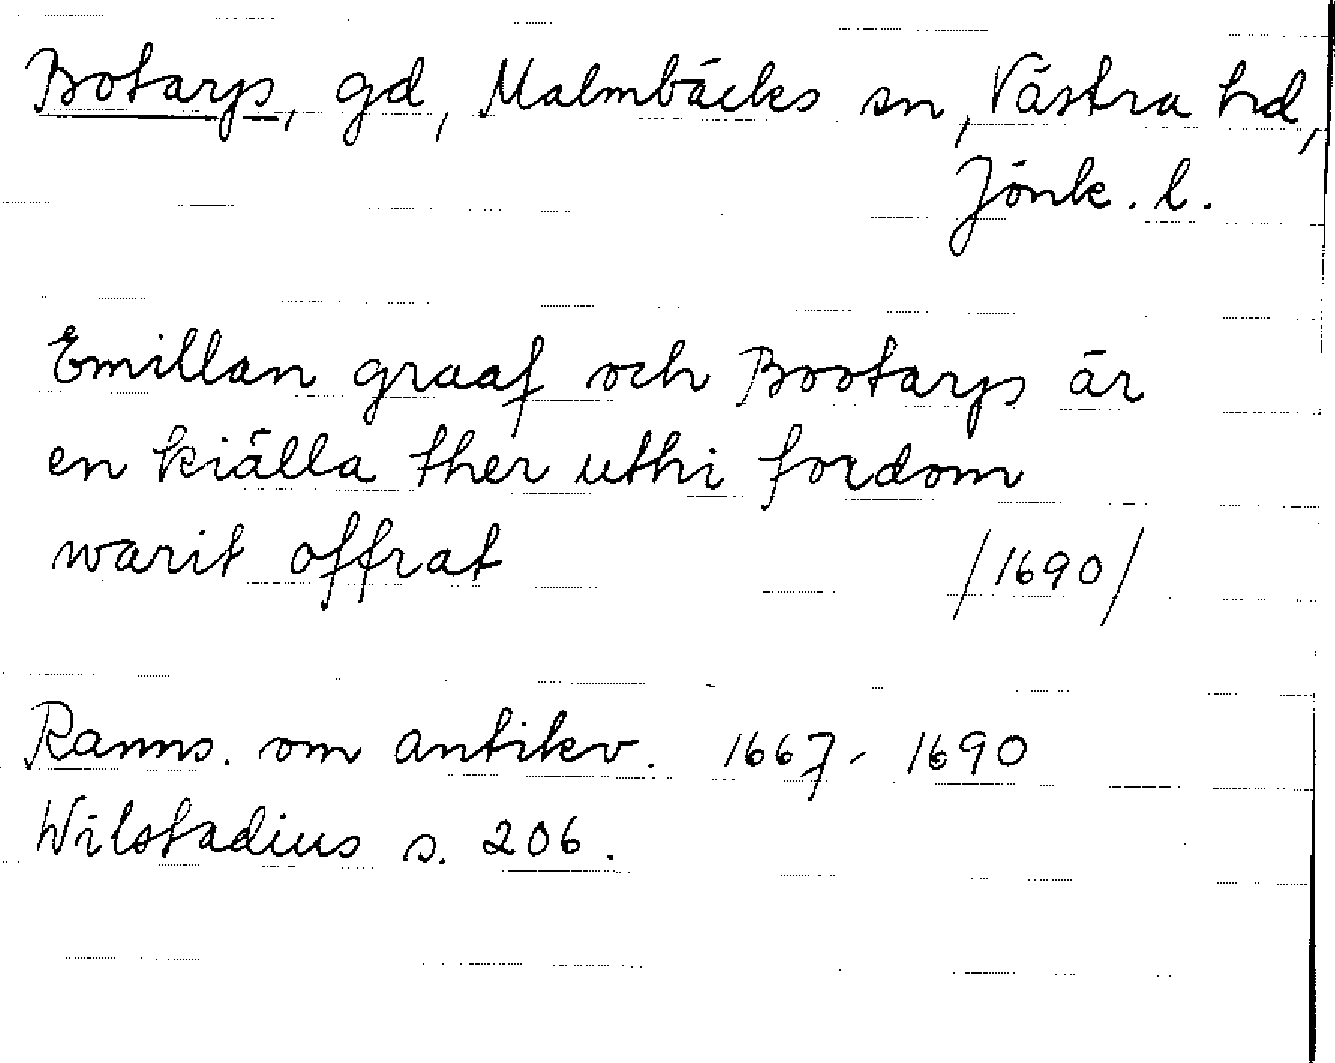 Botarp, gd, Malmbäcks sn, Västra hd,
Jönk. l.
Emillan graaf och Bootarp är
en kiälla ther uthi fordom
warit offrat /1690/
Ranns. om antikv. 1667-1690
Wilstadius s. 206.